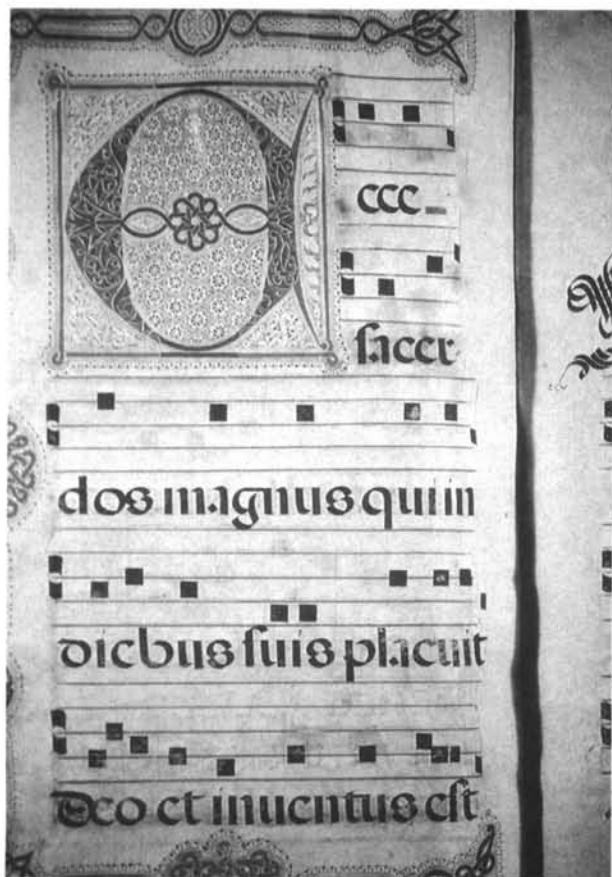 Ecce
sacer
dos magnus qui in
diebus suis placuit
deo et inventus est